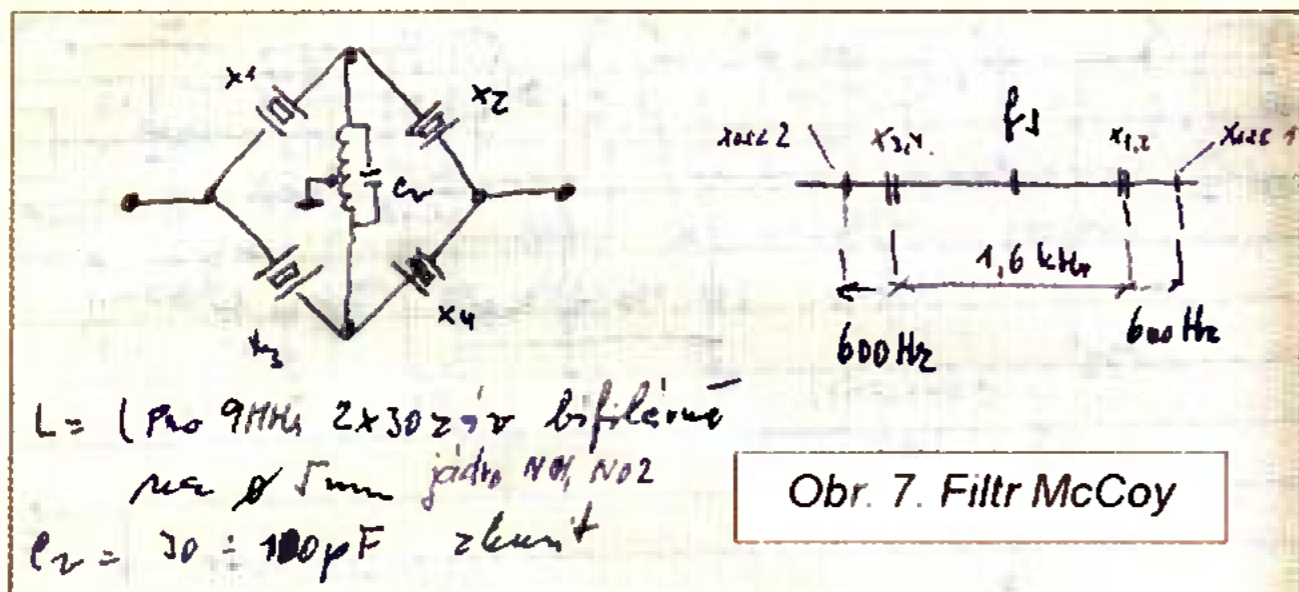 x1
x2
x3
x4
Cv
xosc 2
x3,4
fs
x1,2
xosc 1
1,6 kHz
600 Hz
600 Hz
L = (pro 9MHz 2x30 záv bifilárně
na ø 5mm jádro N01, N02
Cv = 30 ÷ 100pF zkusit
Obr. 7. Filtr McCoy